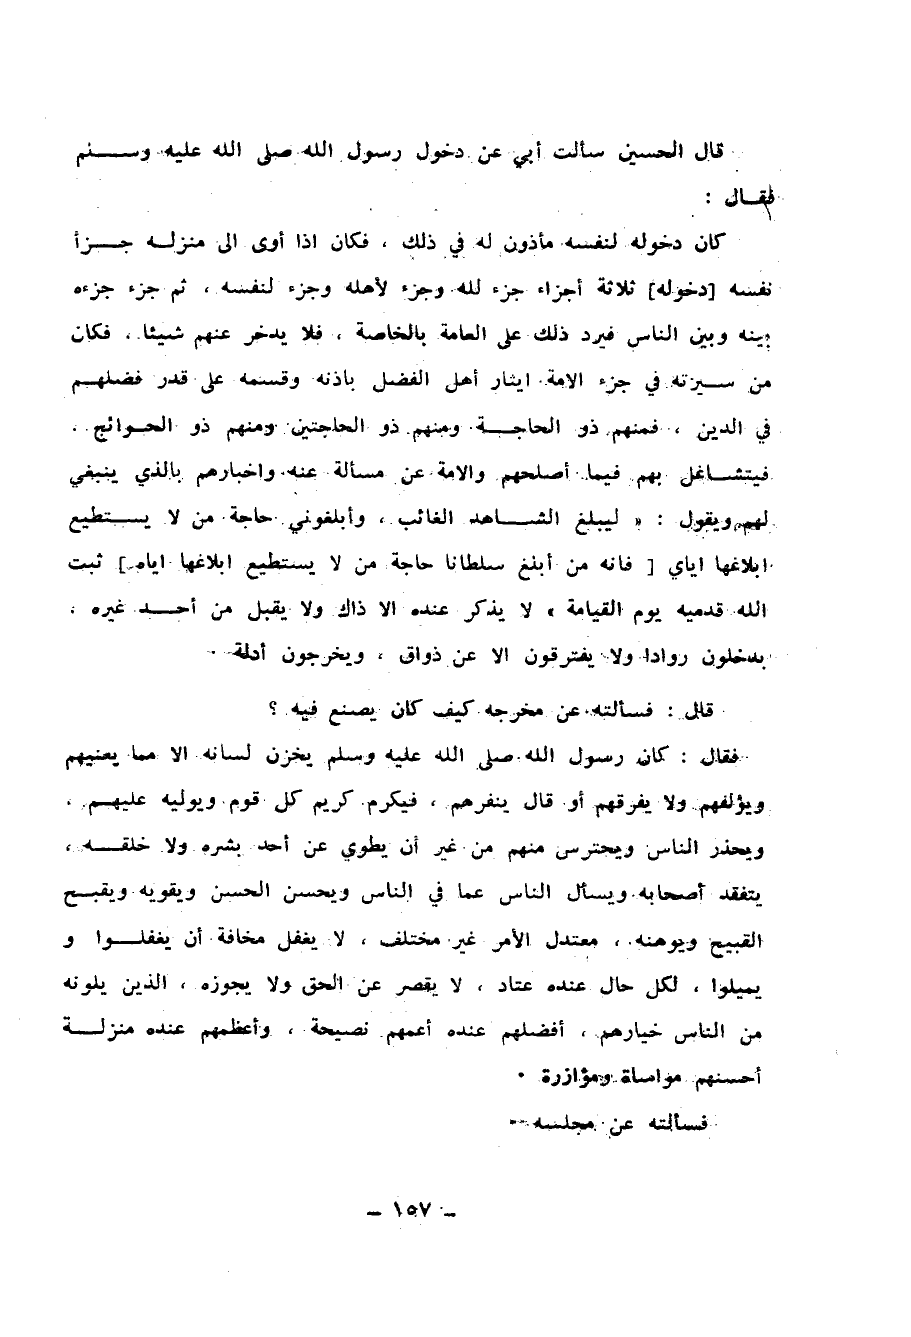 قال الحسين سألت أبي عن دخول رسول الله صلى الله عليه وسلم
فقال :
كان دخوله لنفسه مأذون له في ذلك ، فكان اذا أوى الى منزله جزأ
نفسه [دخوله] ثلاثة أجزاء جزء لله وجزء لأهله وجزء لنفسه ، ثم جزء جزءه
بينه وبين الناس فيرد ذلك على العامة بالخاصة ، فلا يدخر عنهم شيئا ، فكان
من سيرته في جزء الامة ايثار أهل الفضل باذنه وقسمه على قدر فضلهم
في الدين ، فمنهم ذو الحاجة ومنهم ذو الحاجتين ومنهم ذو الحوائج .
فيتشاغل بهم فيما أصلحهم والامة عن مسألة عنه واخبارهم بالذي ينبغي
لهم ويقول : « ليبلغ الشاهد الغائب ، وأبلغوني حاجة من لا يستطيع
ابلاغها اياي [ فانه من أبلغ سلطانا حاجة من لا يستطيع ابلاغها اياه ] ثبت
الله قدميه يوم القيامة » لا يذكر عنده الا ذاك ولا يقبل من أحد غيره .
يدخلون روادا ولا يفترقون الا عن ذواق ، ويخرجون أدلة .
قال : فسألته عن مخرجه كيف كان يصنع فيه ؟
فقال : كان رسول الله صلى الله عليه وسلم يخزن لسانه الا مما يعنيهم
ويؤلفهم ولا يفرقهم أو قال ينفرهم ، فيكرم كريم كل قوم ويوليه عليهم .
ويحذر الناس ويحترس منهم من غير أن يطوي عن أحد بشره ولا خلقه ،
يتفقد أصحابه ويسأل الناس عما في الناس ويحسن الحسن ويقويه ويقبح
القبيح ويوهنه ، معتدل الأمر غير مختلف ، لا يغفل مخافة أن يغفلوا و
يميلوا ، لكل حال عنده عتاد ، لا يقصر عن الحق ولا يجوزه ، الذين يلونه
من الناس خيارهم ، أفضلهم عنده أعمهم نصيحة ، وأعظمهم عنده منزلة
أحسنهم مواساة ومؤازرة .
فسألته عن مجلسه ..
- ١٥٧ -